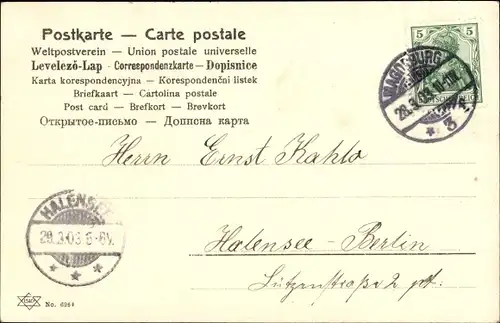 Postkarte — Carte postale
Weltpostverein — Union postale universelle
Levelező-Lap - Correspondenzkarte — Dopisnice
Karta korespondencyjna — Korespondenční listek
Briefkaart — Cartolina postale
Post card — Brefkort — Brevkort
Открытое-письмо — Дописна карта
5 5
MAGDEBURG
28.3.03. 10-11V.
* 3
Herrn Ernst Kahlo
HALENSEE
29.3.03. 6-8V.
* * *
Halensee-Berlin
Lützenstraße 2 pt.
No. 6284